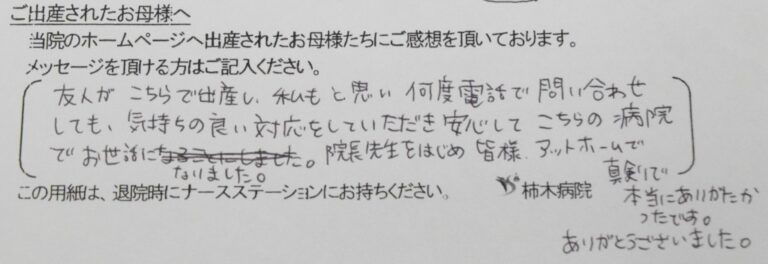 ご出産されたお母様へ
当院のホームページへ出産されたお母様たちにご感想を頂いております。
メッセージを頂ける方はご記入ください。
友人が こちらで出産し、私もと思い 何度電話で 問い合わせ
しても、気持ちの良い対応をしていただき 安心して こちらの 病院
で お世話になることにしました。院長先生をはじめ 皆様、アットホームで
なりました。
真剣で
この用紙は、退院時にナースステーションにお持ちください。
柿木病院
本当にありがたか
ったです。
ありがとうございました。